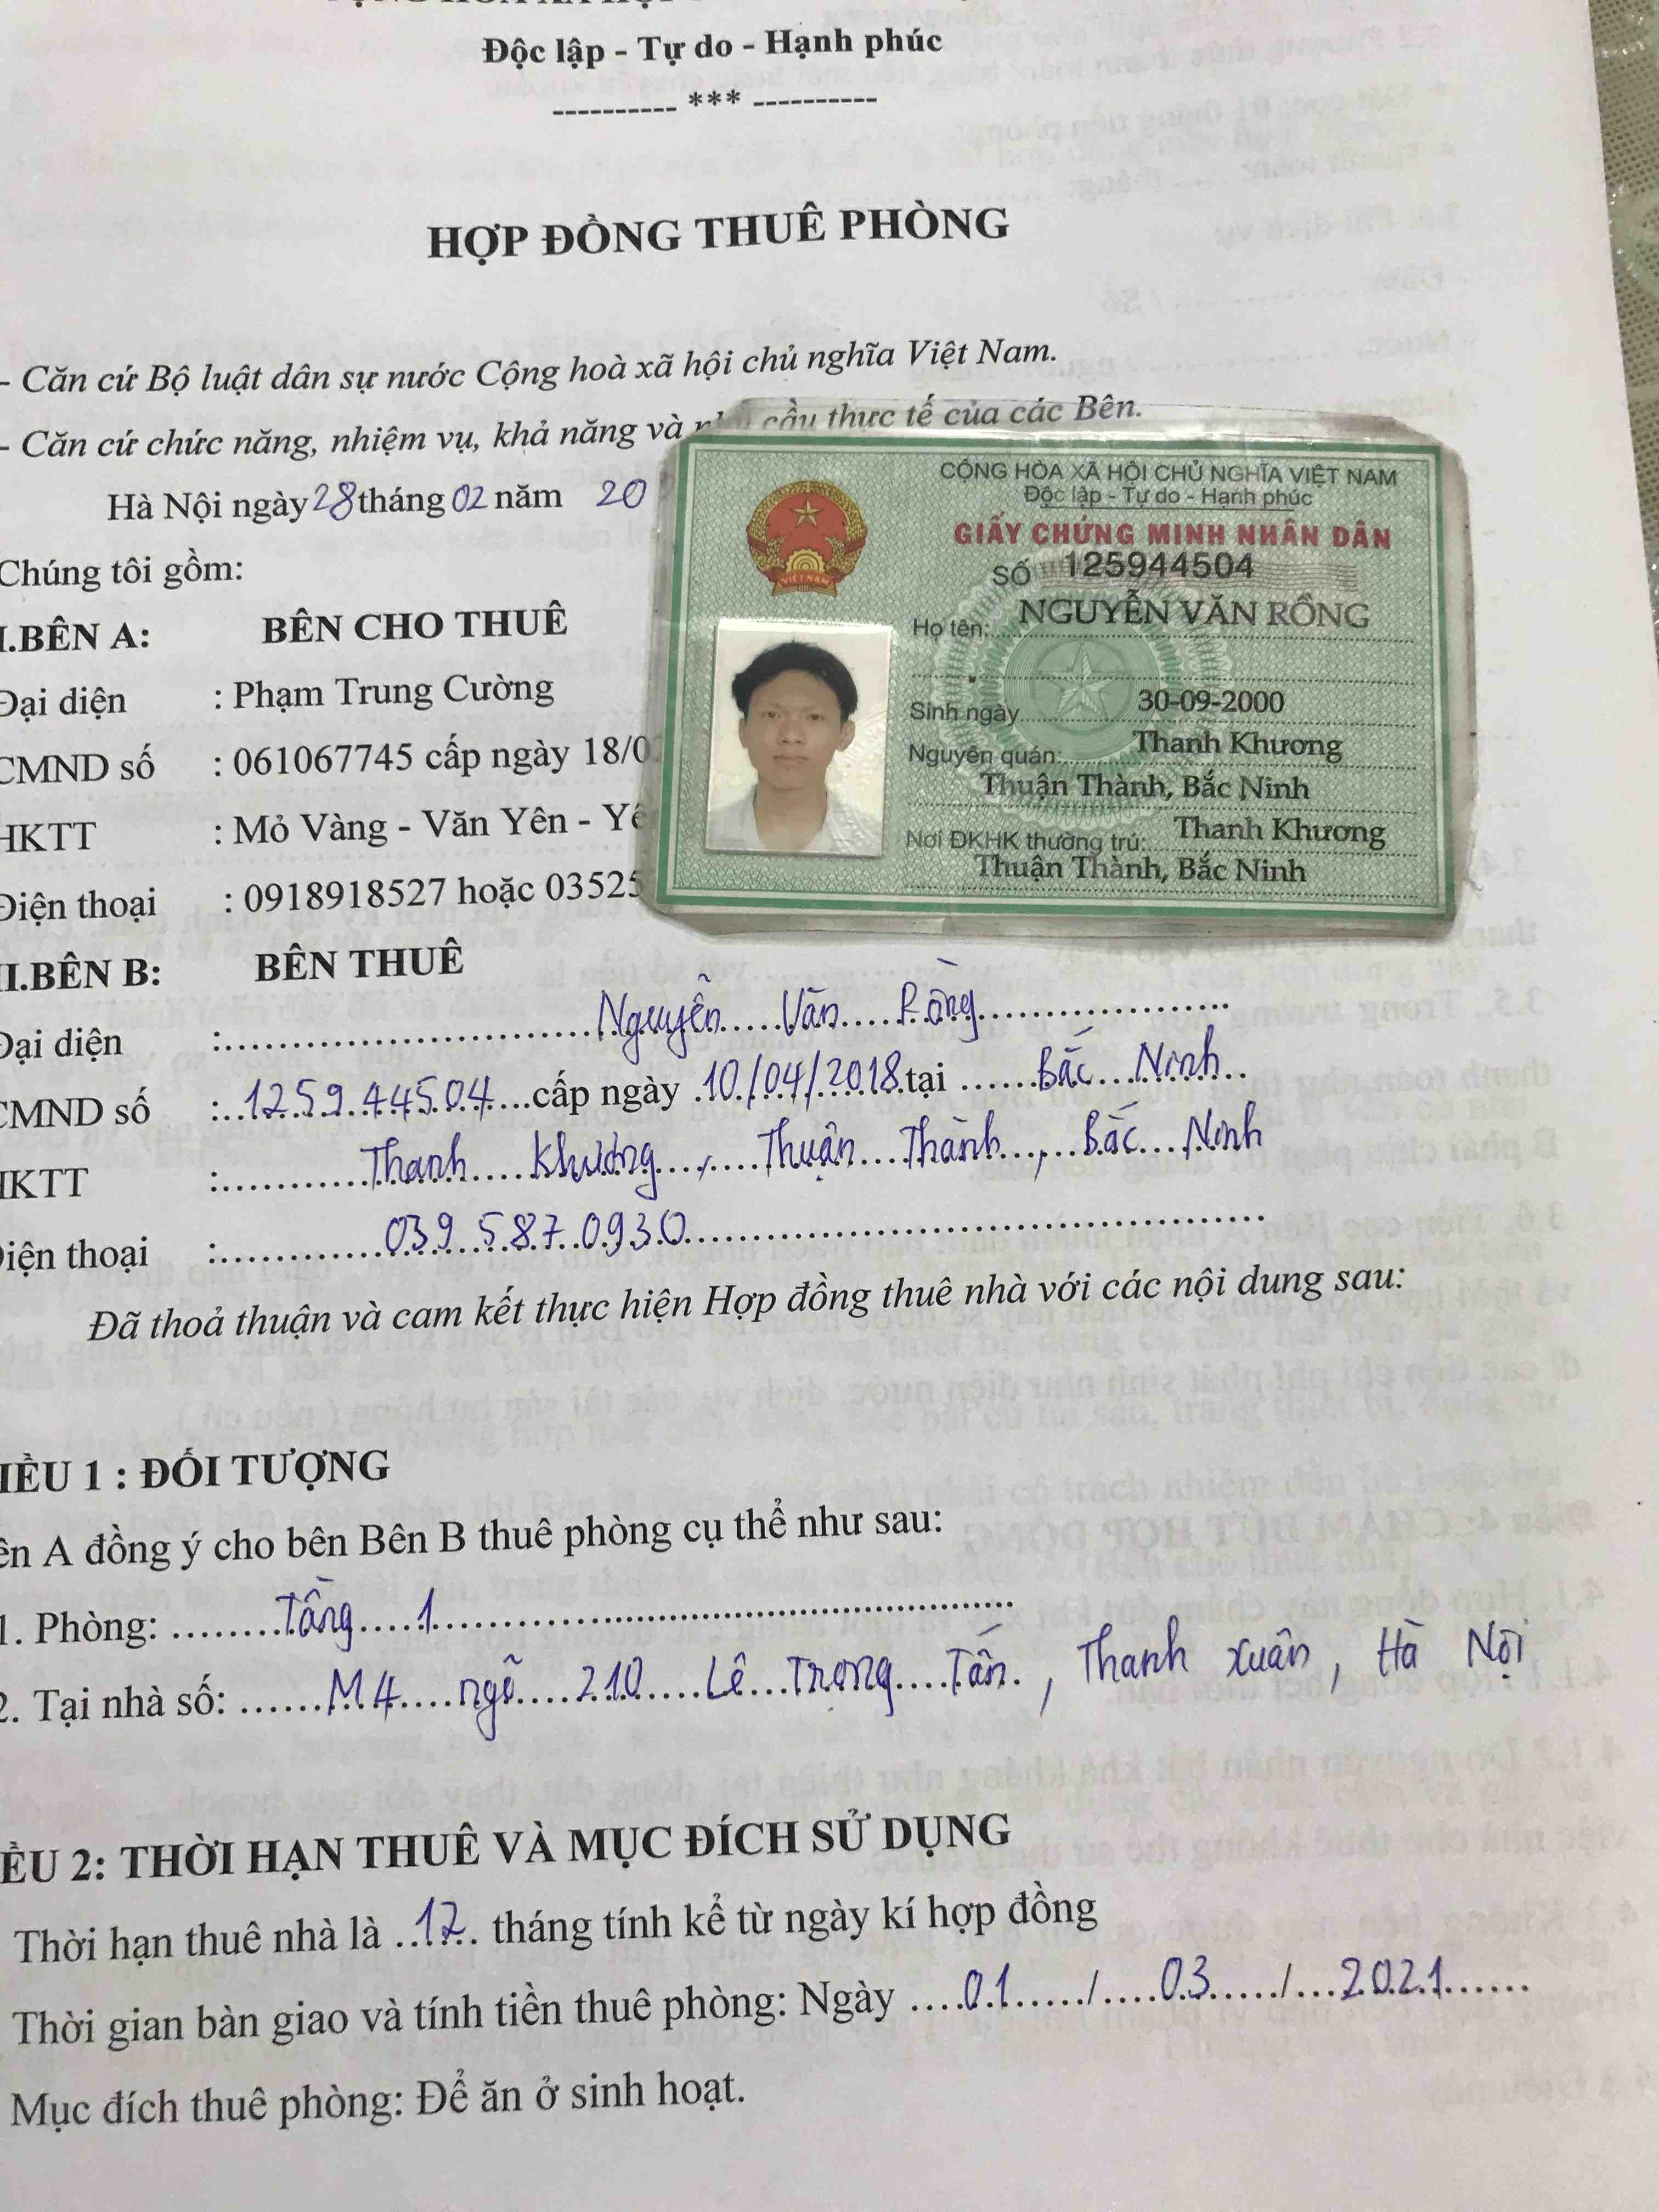 Độc lập - Tự do - Hạnh phúc
---------- *** ----------
HỢP ĐỒNG THUÊ PHÒNG
- Căn cứ Bộ luật dân sự nước Cộng hoà xã hội chủ nghĩa Việt Nam.
- Căn cứ chức năng, nhiệm vụ, khả năng và cầu thực tế của các Bên.
Hà Nội ngày 28 tháng 02 năm 20
Chúng tôi gồm:
I.BÊN A: BÊN CHO THUÊ
Đại diện : Phạm Trung Cường
CMND số : 061067745 cấp ngày 18/0
HKTT : Mỏ Vàng - Văn Yên - Yê
Điện thoại : 0918918527 hoặc 03525
CỘNG HÒA XÃ HỘI CHỦ NGHĨA VIỆT NAM
Độc lập - Tự do - Hạnh phúc
GIẤY CHỨNG MINH NHÂN DÂN
SỐ 125944504
Họ tên: NGUYỄN VĂN RỒNG
Sinh ngày 30-09-2000
Nguyên quán: Thanh Khương
Thuận Thành, Bắc Ninh
Nơi ĐKHK thường trú: Thanh Khương
Thuận Thành, Bắc Ninh
VIỆT NAM
II.BÊN B: BÊN THUÊ
Đại diện : Nguyễn Văn Rồng
CMND số : 125944504 cấp ngày 10/04/2018 tại Bắc Ninh
HKTT : Thanh Khương, Thuận Thành, Bắc Ninh
Điện thoại : 039 587 0930
Đã thoả thuận và cam kết thực hiện Hợp đồng thuê nhà với các nội dung sau:
IỀU 1 : ĐỐI TƯỢNG
ên A đồng ý cho bên Bên B thuê phòng cụ thể như sau:
1. Phòng: Tầng 1
2. Tại nhà số: M4 ngõ 210 Lê Trọng Tấn, Thanh Xuân, Hà Nội
ỀU 2: THỜI HẠN THUÊ VÀ MỤC ĐÍCH SỬ DỤNG
Thời hạn thuê nhà là 12 tháng tính kể từ ngày kí hợp đồng
Thời gian bàn giao và tính tiền thuê phòng: Ngày 01 / 03 / 2021
Mục đích thuê phòng: Để ăn ở sinh hoạt.